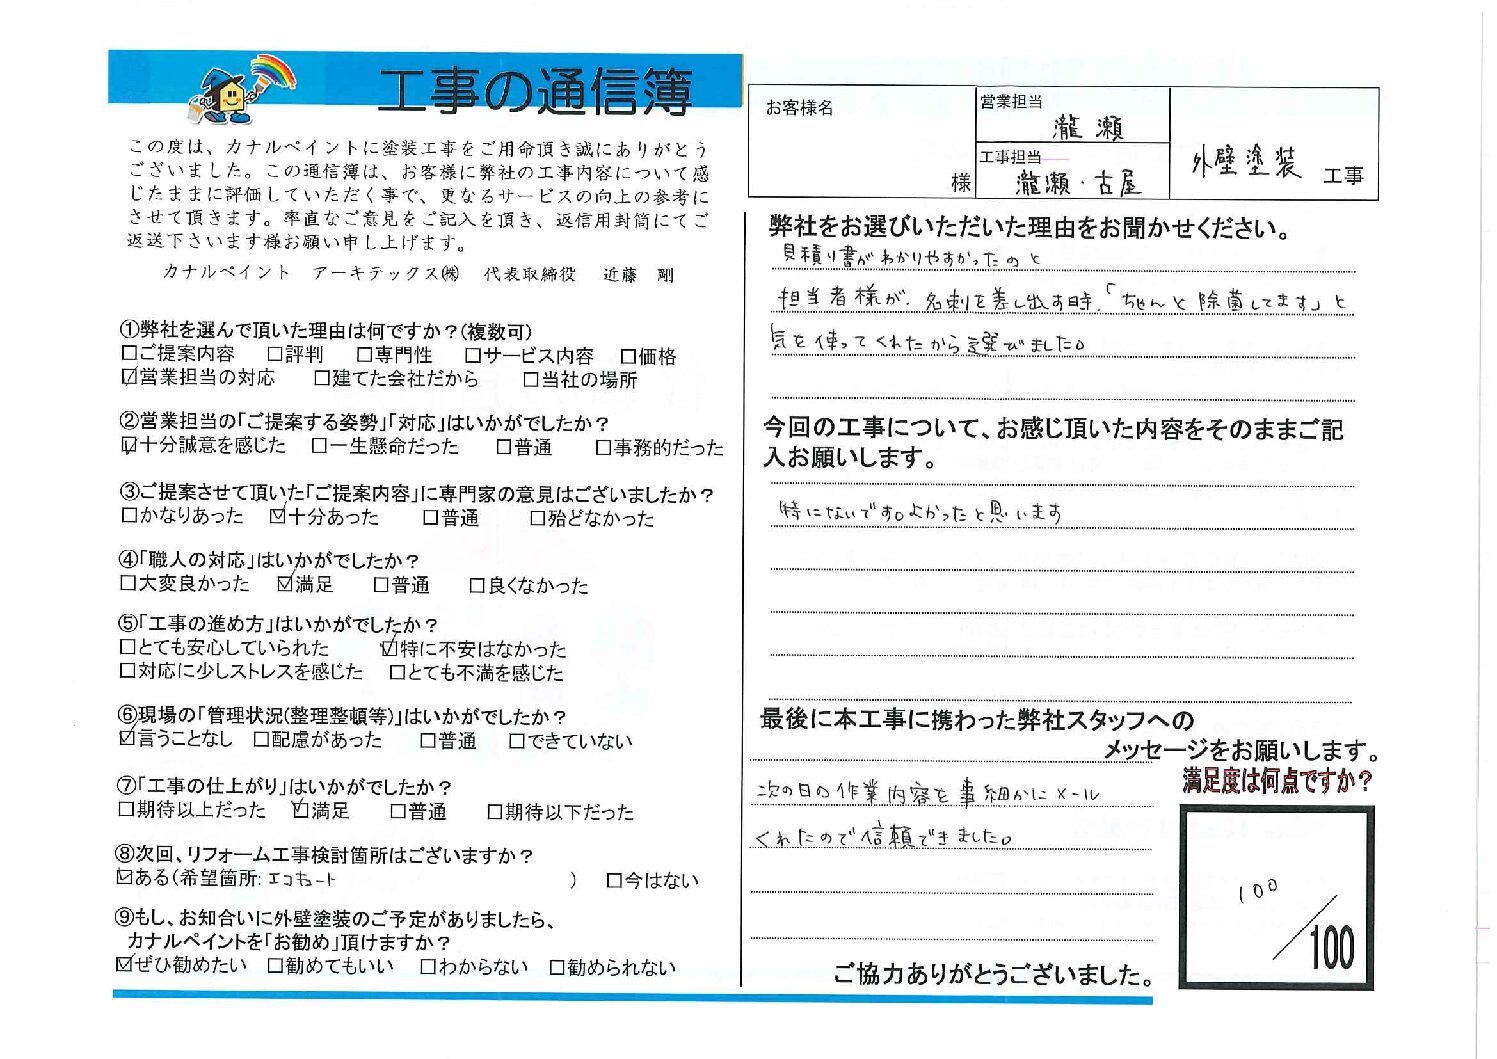 工事の通信簿
この度は、カナルペイントに塗装工事をご用命頂き誠にありがとう
ございました。この通信簿は、お客様に弊社の工事内容について感
じたままに評価していただく事で、更なるサービスの向上の参考に
させて頂きます。率直なご意見をご記入を頂き、返信用封筒にてご
返送下さいます様お願い申し上げます。
カナルペイント アーキテックス㈱ 代表取締役 近藤 剛
①弊社を選んで頂いた理由は何ですか？(複数可)
□ご提案内容 □評判 □専門性 □サービス内容 □価格
☑営業担当の対応 □建てた会社だから □当社の場所
②営業担当の「ご提案する姿勢」「対応」はいかがでしたか？
☑十分誠意を感じた □一生懸命だった □普通 □事務的だった
③ご提案させて頂いた「ご提案内容」に専門家の意見はございましたか？
□かなりあった ☑十分あった □普通 □殆どなかった
④「職人の対応」はいかがでしたか？
□大変良かった ☑満足 □普通 □良くなかった
⑤「工事の進め方」はいかがでしたか？
□とても安心していられた ☑特に不安はなかった
□対応に少しストレスを感じた □とても不満を感じた
⑥現場の「管理状況(整理整頓等)」はいかがでしたか？
☑言うことなし □配慮があった □普通 □できていない
⑦「工事の仕上がり」はいかがでしたか？
□期待以上だった ☑満足 □普通 □期待以下だった
⑧次回、リフォーム工事検討箇所はございますか？
☑ある(希望箇所: エコキュート ) □今はない
⑨もし、お知合いに外壁塗装のご予定がありましたら、
カナルペイントを「お勧め」頂けますか？
☑ぜひ勧めたい □勧めてもいい □わからない □勧められない
お客様名
様
営業担当
瀧瀬
工事担当
瀧瀬・古屋
外壁塗装 工事
弊社をお選びいただいた理由をお聞かせください。
見積り書がわかりやすかったのと
担当者様が、名刺を差し出す時、「ちゃんと除菌してます」と
気を使ってくれたから選びました。
今回の工事について、お感じ頂いた内容をそのままご記
入お願いします。
特にないです。よかったと思います
最後に本工事に携わった弊社スタッフへの
メッセージをお願いします。
次の日の作業内容を事細かにメール
くれたので信頼できました。
満足度は何点ですか？
100
/100
ご協力ありがとうございました。